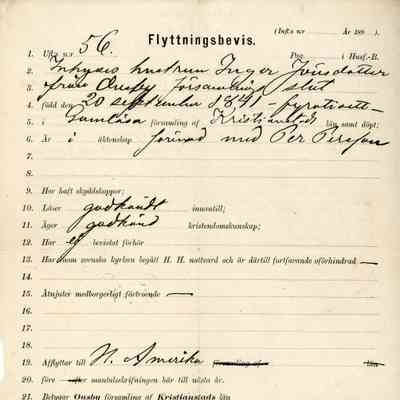 (Inft:s n:r År 188 ).
Flyttningsbevis.
1. Utfts n:r 56. Pag. i Husf.-B.
2. Inhyses hustrun Inger Jönsdotter
3. från Önnby församlings slut
4. född den 20 september 1841 - fyratioett -
5. i församling af Kristianstads län samt döpt;
6. Är i äktenskap förenad med Per Persson
7.
8.
9. Har haft skyddskoppor;
10. Läser godkändt innantill;
11. Äger godkänd kristendomskunskap;
12. Har ej bevistat förhör
13. Har inom svenska kyrkan begått H. H. nattvard och är därtill fortfarande oförhindrad —
14.
15. Åtnjuter medborgerligt förtroende —
16.
17.
18.
19. Afflyttar till N. Amerika församling af län
20. före efter mantalsskrifningen här till nästa år.
21. Betygar Önnby församling af Kristianstads län